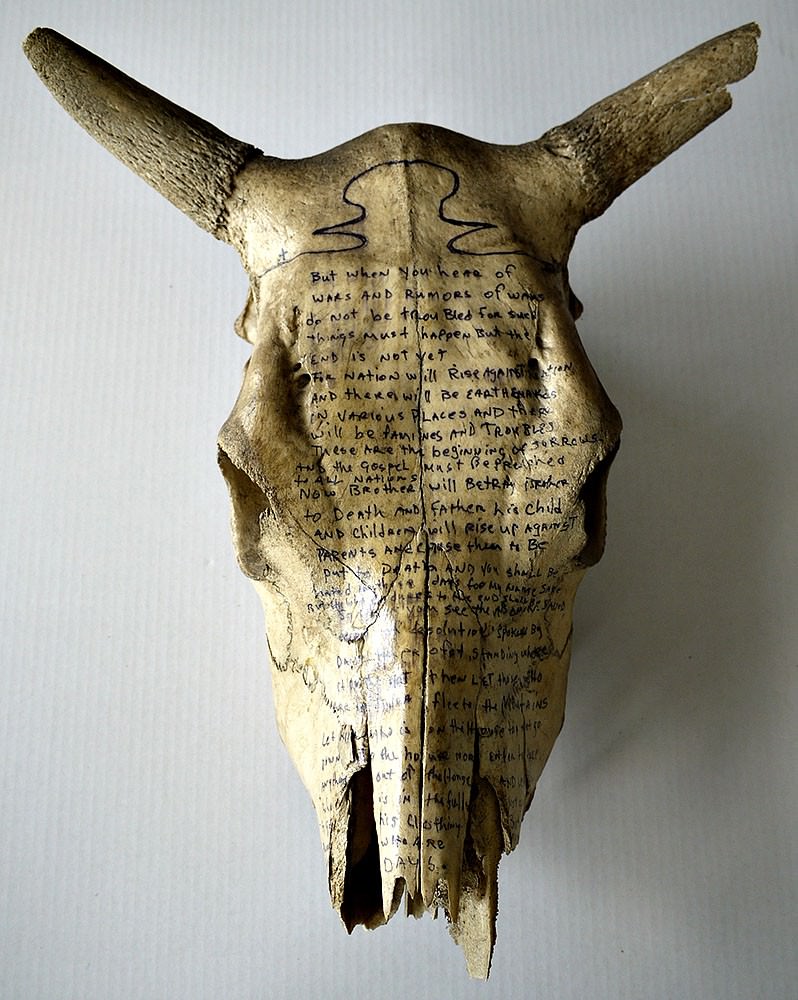 But when you hear of
WARS AND RUMORS of WARS
do not be trouBled for such
things must happen But the
END is Not yet
For NATION will Rise AgAinst NATION
AND there will Be EARTHQUAKES
iN VARIOUS PLACES AND there
will be famines AND TROUBLES
These ARe the beginning of SORROWS
AND the Gospel must Be preAched
to ALL NATIONS
Now Brother will BetRAy Brother
to DeAth AND fAther his child
AND children will rise up AgAinst
PARENTS AND cAuse them to Be
put to DeAth AND you shAll Be
hAted in those dAys for My NAme SAke
to the END shAll Be
you see the
spoken By
prophet, stAnding where
then Let those who
flee to the MountAiNS
Let who is on the House not go
the house nor enter to
out of the House AND
is iN the field
his clothing
who ARe
DAYS.